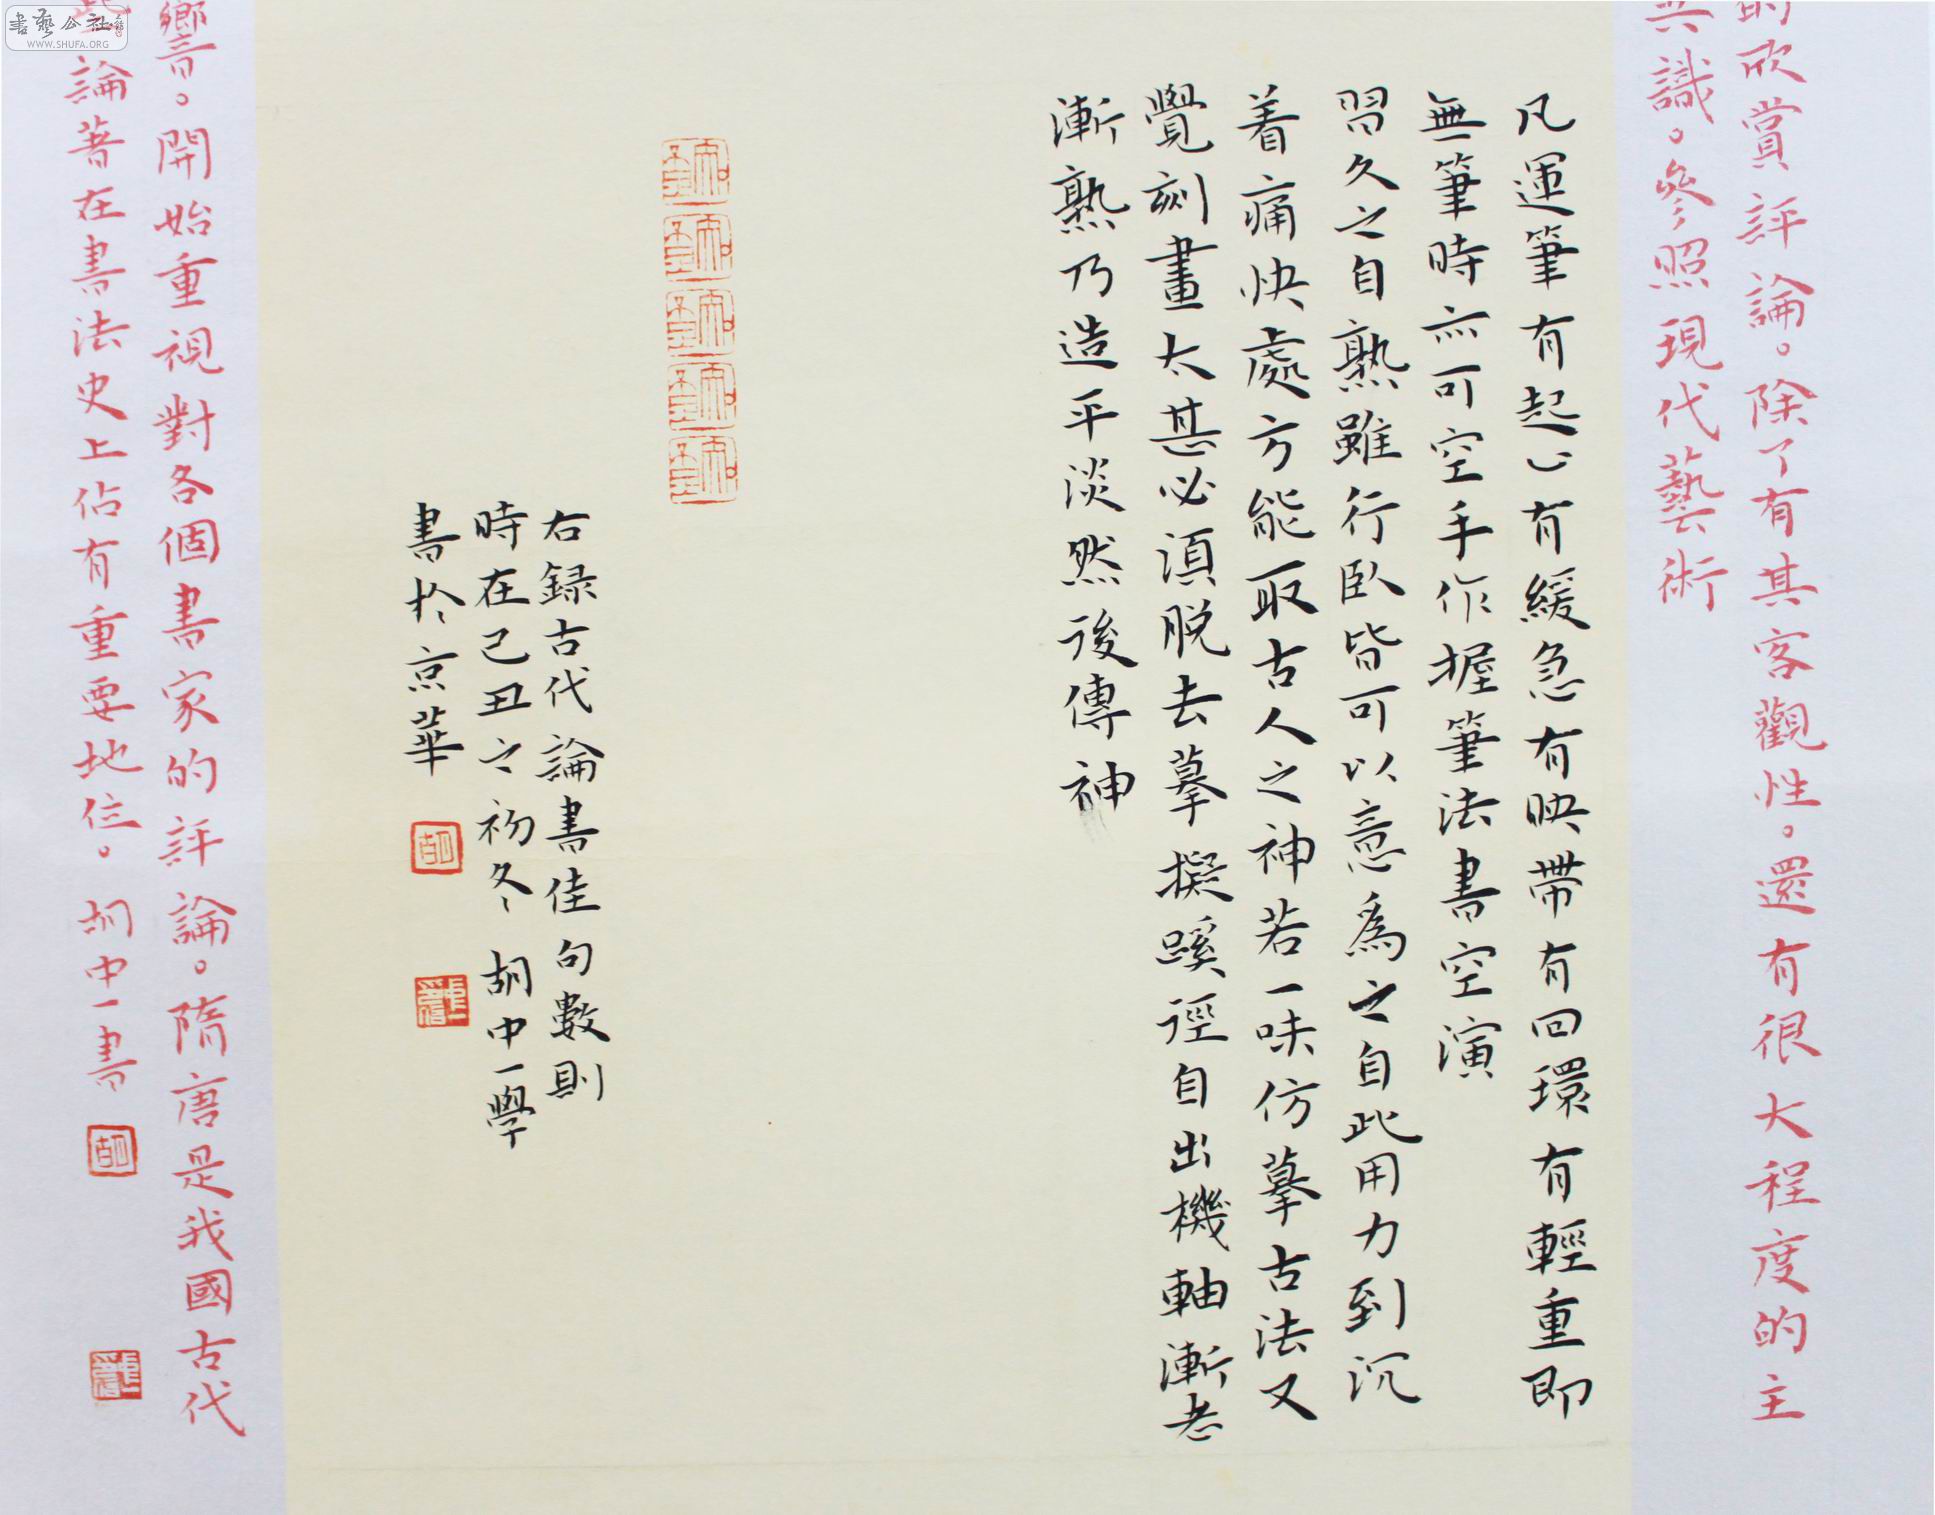 的欣賞評論。除了有其客觀性。還有很大程度的主
識。參照現代藝術
凡運筆有起止有緩急有映帶有回環有輕重即
無筆時亦可空手作握筆法書空演
習久之自熟雖行臥皆可以意為之自此用力到沉
着痛快處方能取古人之神若一味仿摹古法又
覺刻畫太甚必須脫去摹擬蹊徑自出機軸漸老
漸熟乃造平淡然後傳神
右録古代論書佳句數則
時在己丑之初冬胡中一學
書於京華
響。開始重視對各個書家的評論。隋唐是我國古代
論著在書法史上佔有重要地位。胡中一書
書藝公社
WWW.SHUFA.ORG